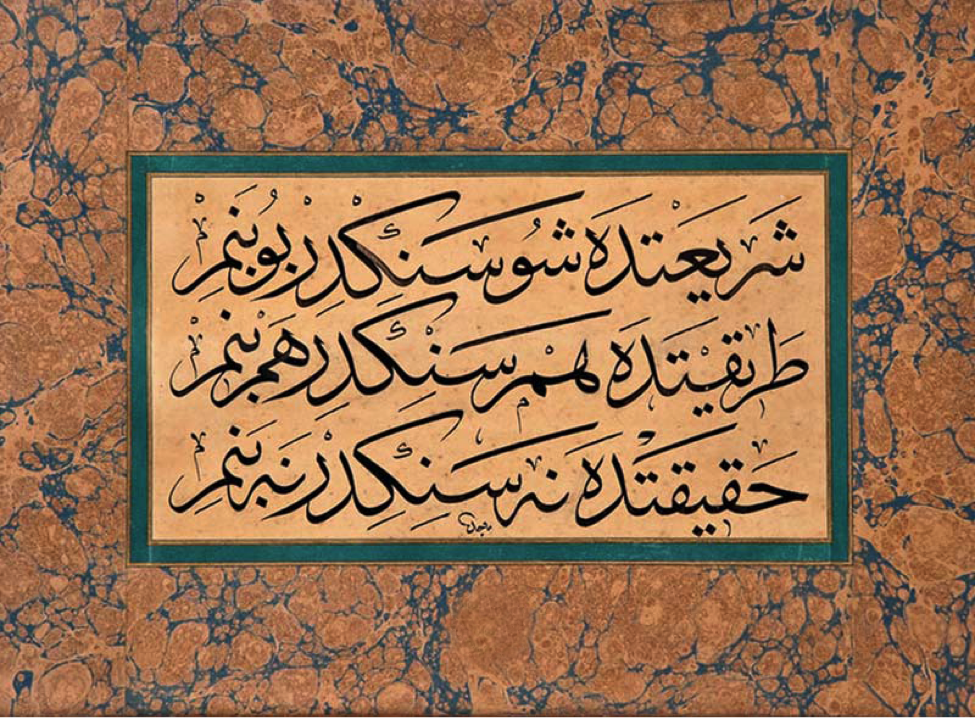 شَريعَتده شُو سَنِكدِر بُو بَنِم
طَريقتَده هم سَنِكدِر هم بَنِم
حَقيقتده نه سَنِكِدر نه بَنِم